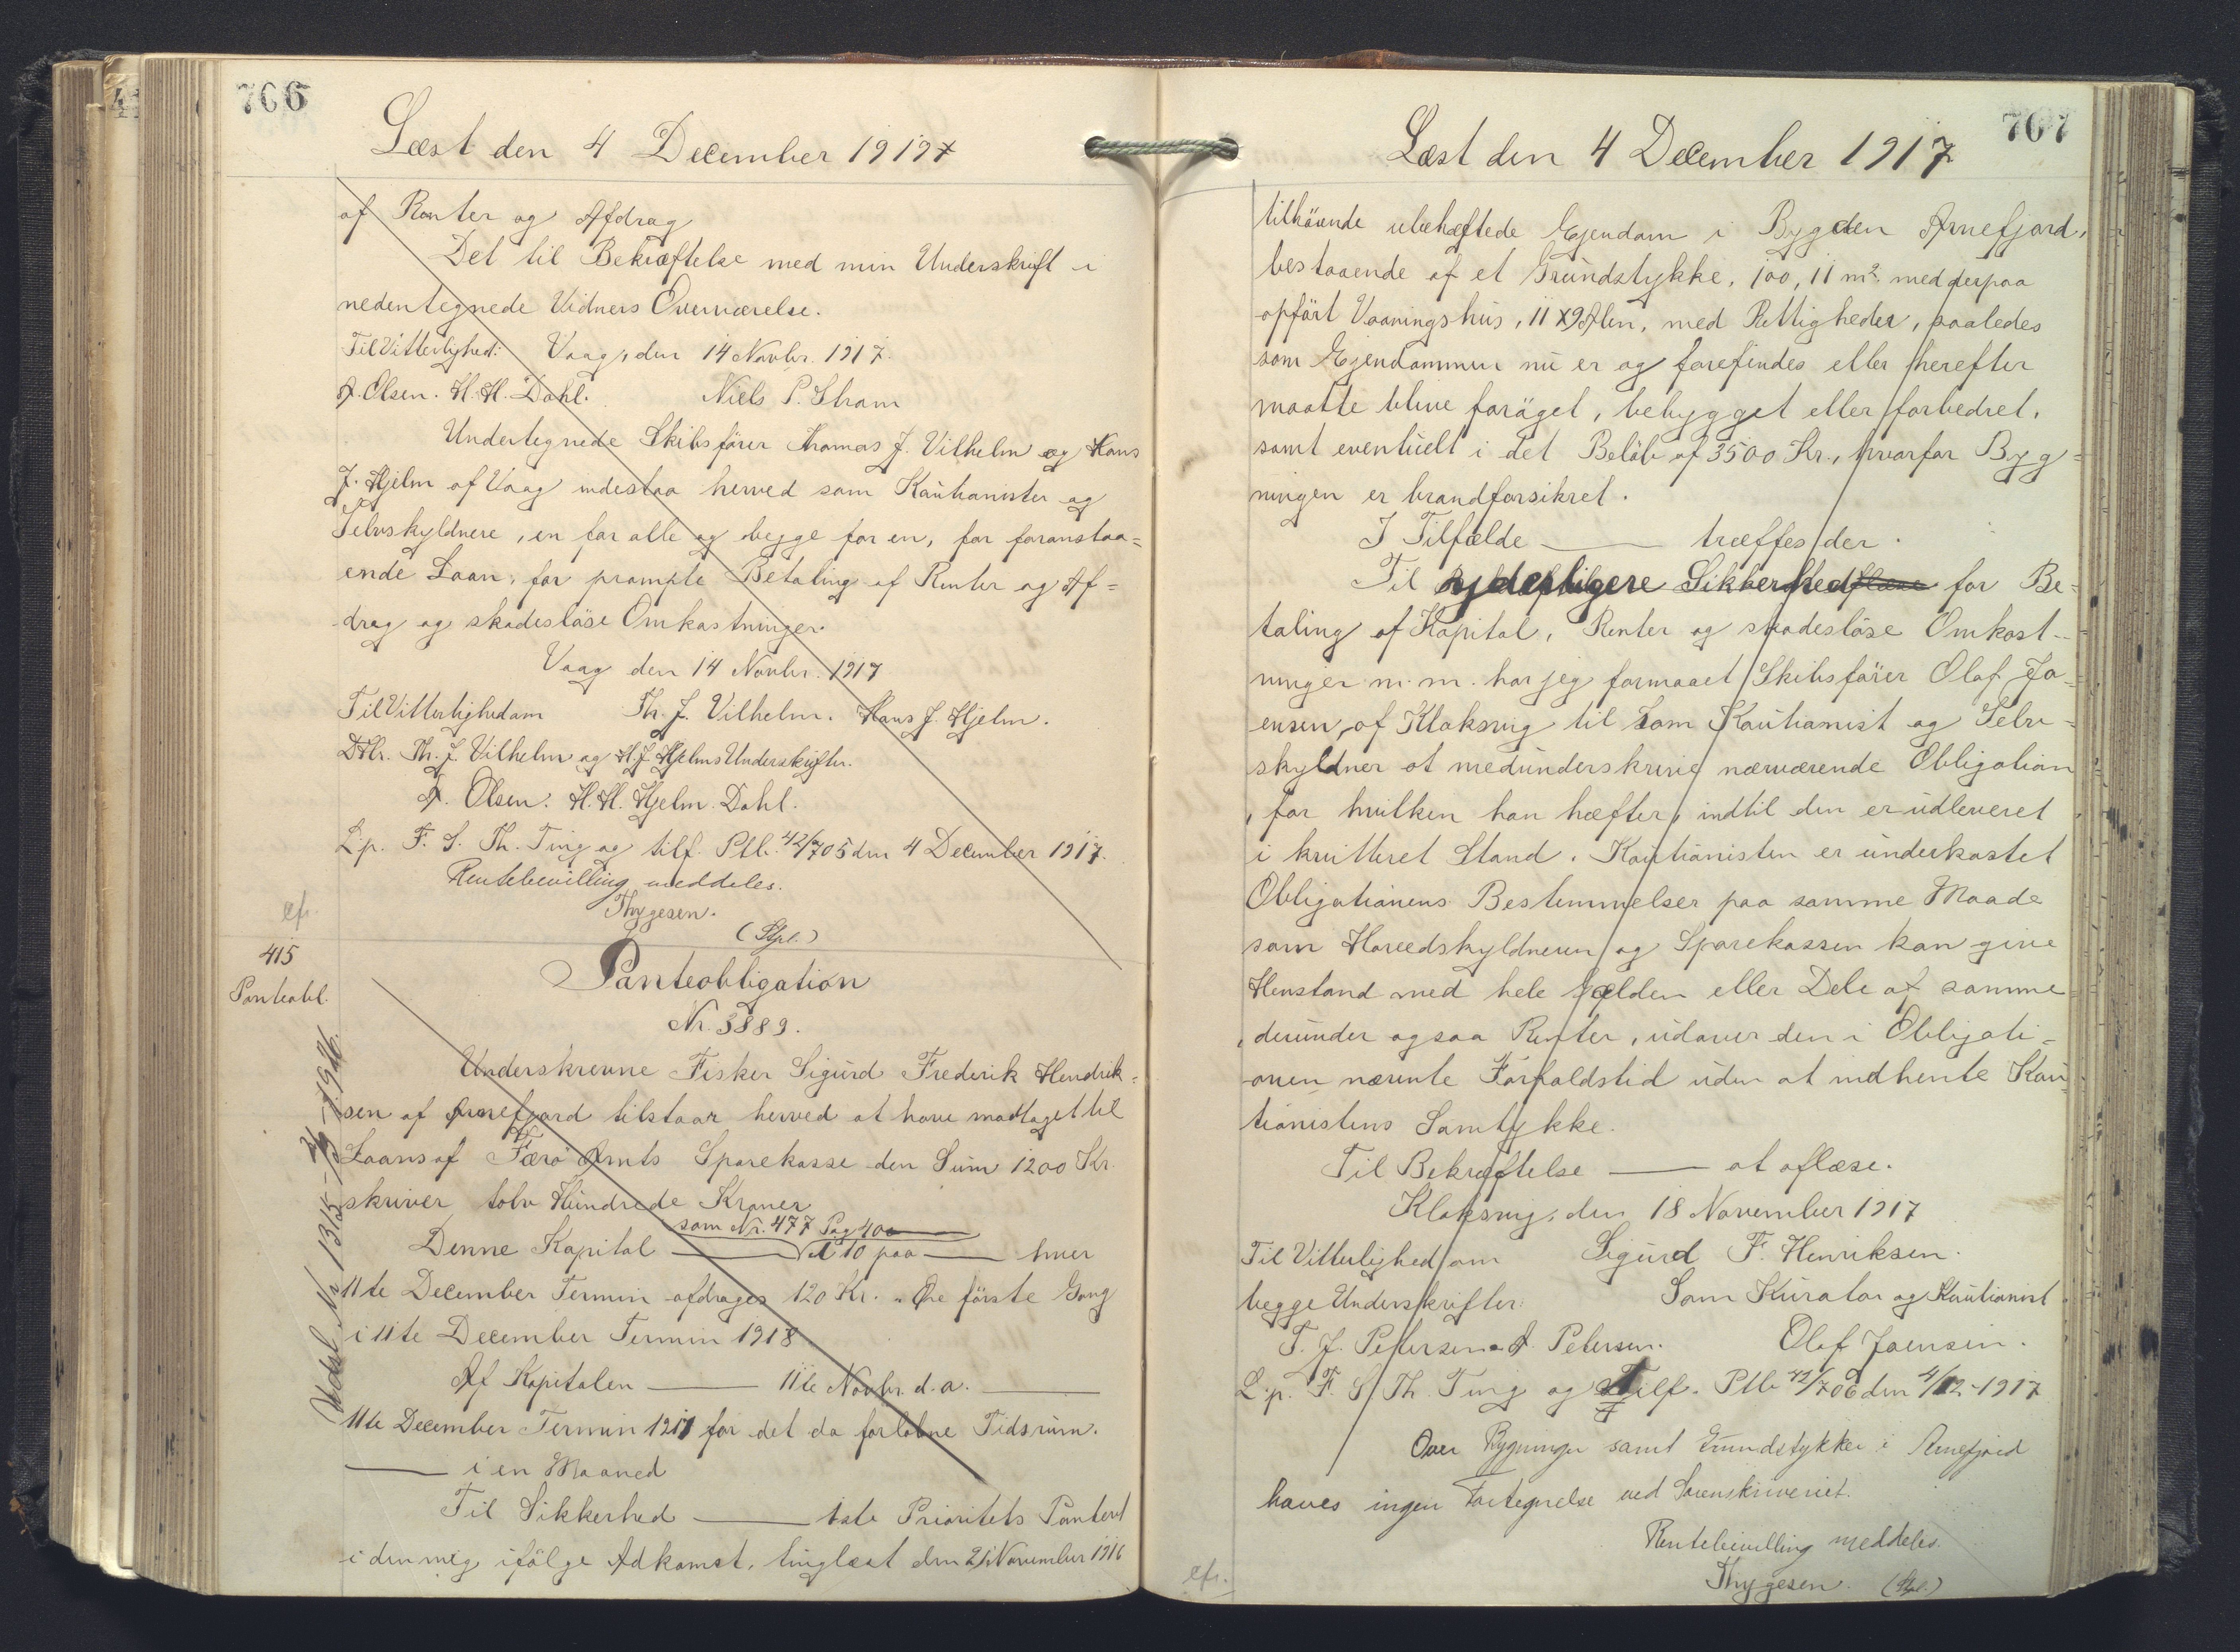 766
Læst den 4 December 1917
af Renter og Afdrag
Det til Bekræftelse med min Underskrift i
nedentegnede Vidners Overværelse.
Til Vitterlighed: Vaag, den 14 Novbr. 1917.
A. Olsen. H. H. Dahl. Niels P. Thom
Undertegnede Skibsförer Thomas J. Vilhelm og Hans
J. Hjelm af Vaag indestaa herved som Kautionister og
Selvskyldnere, en for alle og begge for en, for foranstaa=
ende Laan, for prompte Betaling af Renter og Af=
drag og skadesløse Omkostninger.
Vaag den 14 Novbr. 1917
Til Vitterlighed om Th. J. Vilhelm. Hans J. Hjelm.
DHr. Th. J. Vilhelm og H. J. Hjelms Underskrifter.
A. Olsen. H. H. Hjelm Dahl.
L. p. F. S. Th. Ting og tilf. Ptb. 42/705 den 4 December 1917.
Rentebevilling meddeles.
Thygesen.
(Stpl.)
cfr.
415
Panteobl.
Udsl. No 1315 - 1926.
Panteobligation
Nr. 3889.
Underskrevne Fisker Sigurd Frederik Hendrik=
sen af Arnefjord tilstaar herved at have modtaget til
Laans af Færö Amts Sparekasse den Sum 1200 Kr.
skriver tolv Hundrede Kroner
som Nr. 477 Pag 400
Denne Kapital —— Nr 10 paa —— hver
11te December Termin afdrages 120 Kr. „ Øre förste Gang
i 11te December Termin 1918
Af Kapitalen —— 11te Novbr. d.a. ——
11te December Termin 1917 for det da forløbne Tidsrum.
—— i en Maaned
Til Sikkerhed —— 1ste Prioritets Panteret
i den mig ifölge Adkomst, tinglæst den 21 November 1916
767
Læst den 4 December 1917
tilhörende ubehæftede Ejendom i Bygden Arnefjord,
bestaaende af et Grundstykke, 100,11 m² med derpaa
opfört Vaaningshus, 11 x 9 Alen, med Rettigheder, saaledes
som Ejendommen nu er og forefindes eller herefter
maatte blive foröget, bebygget eller forbedret,
samt eventuelt i det Beløb af 3500 Kr., hvorfor Byg=
ningen er brandforsikret.
I Tilfælde —— træffes der.
Til yderligere Sikkerhed for Be=
taling af Kapital, Renter og skadesløse Omkost=
ninger m.m. har jeg formaaet Skibsförer Olaf Jo=
ensen, af Klaksvig til som Kautionist og Selv=
skyldner at medunderskrive nærværende Obligation
, for hvilken han hæfter, indtil den er udleveret
i kvitteret Stand. Kautionisten er underkastet
Obligationens Bestemmelser paa samme Maade
som Hovedskyldneren og Sparekassen kan give
Henstand med hele Gælden eller Dele af samme
, derunder ogsaa Renter, udover den i Obligati=
onen nævnte Forfaldstid uden at indhente Kau=
tionistens Samtykke.
Til Bekræftelse —— at aflæse.
Klaksvig, den 18 November 1917
Til Vitterlighed om Sigurd F. Henriksen.
begge Underskrifter: Som Kurator og Kautionist
T. J. Petersen. J. Petersen. Olaf Joensen.
L. p. F. S. Th. Ting og Tilf. Ptb 42/706 den 4/12-1917
Over Bygninger samt Grundstykker i Arnefjord
haves ingen Fortegnelse ved Sorenskriveriet.
Rentebevilling meddeles.
Thygesen. (Stpl.)
cfr.